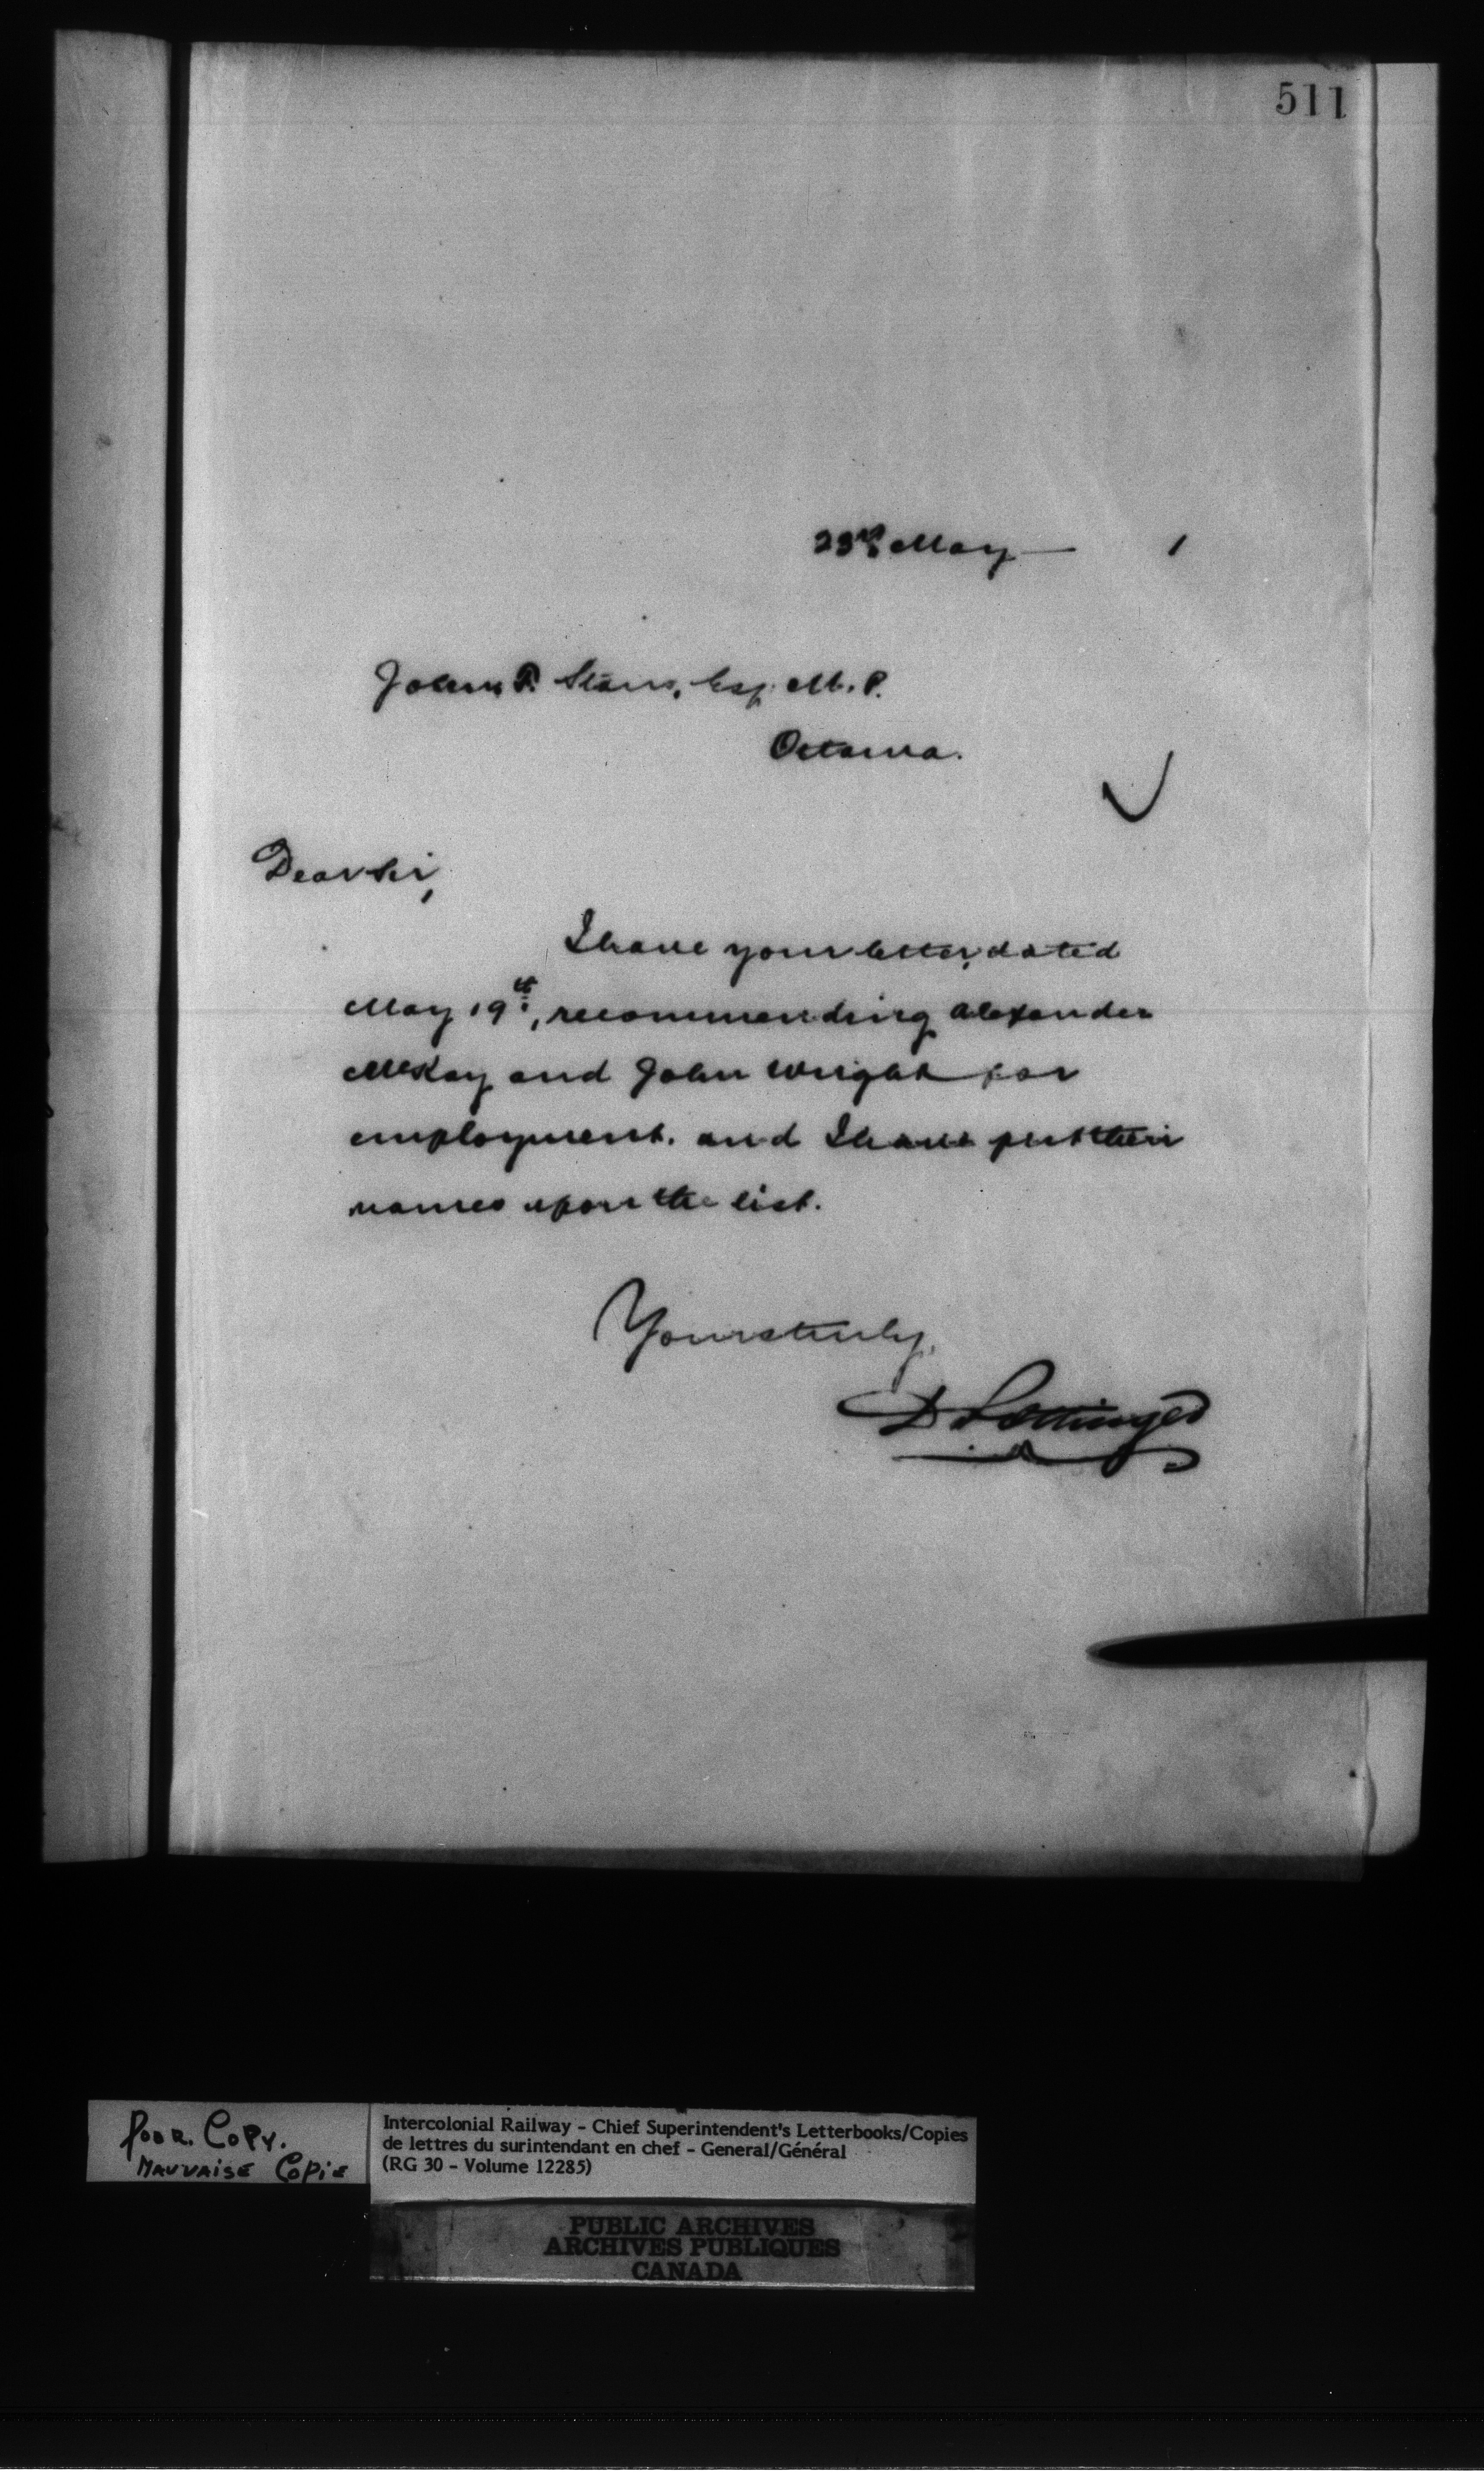 511
23rd May — 1
John F. Stairs, Esq. M. P.
Ottawa.
Dear Sir,
I have your letter, dated
May 19th, recommending Alexander
McKay and John Wright for
employment. and I have put their
names upon the list.
Yours truly,
D Pottinger
Poor. Copy.
Mauvaise Copie
Intercolonial Railway - Chief Superintendent's Letterbooks/Copies
de lettres du surintendant en chef - General/Général
(RG 30 - Volume 12285)
PUBLIC ARCHIVES
ARCHIVES PUBLIQUES
CANADA